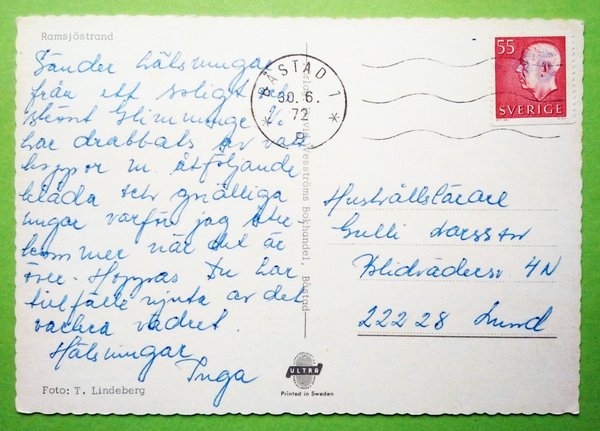 Ramsjöstrand
Sänder hälsningar
från ett soligt och
skönt Glimminge. Vi
har drabbats av vatt
koppor m. åtföljande
klåda och gnälliga
ungar varför jag åter
kommer när det är
över. Hoppas Du har
tillfälle njuta av det
vackra vädret.
Hälsningar
Inga
Foto: T. Lindeberg
BÅSTAD 1
30. 6.
72
55
SVERIGE
Bokhandel, Båstad
Hushållslärare
Gulli Larsson
Blidvädersv. 4N
222 28 Lund
ULTRA
Printed in Sweden